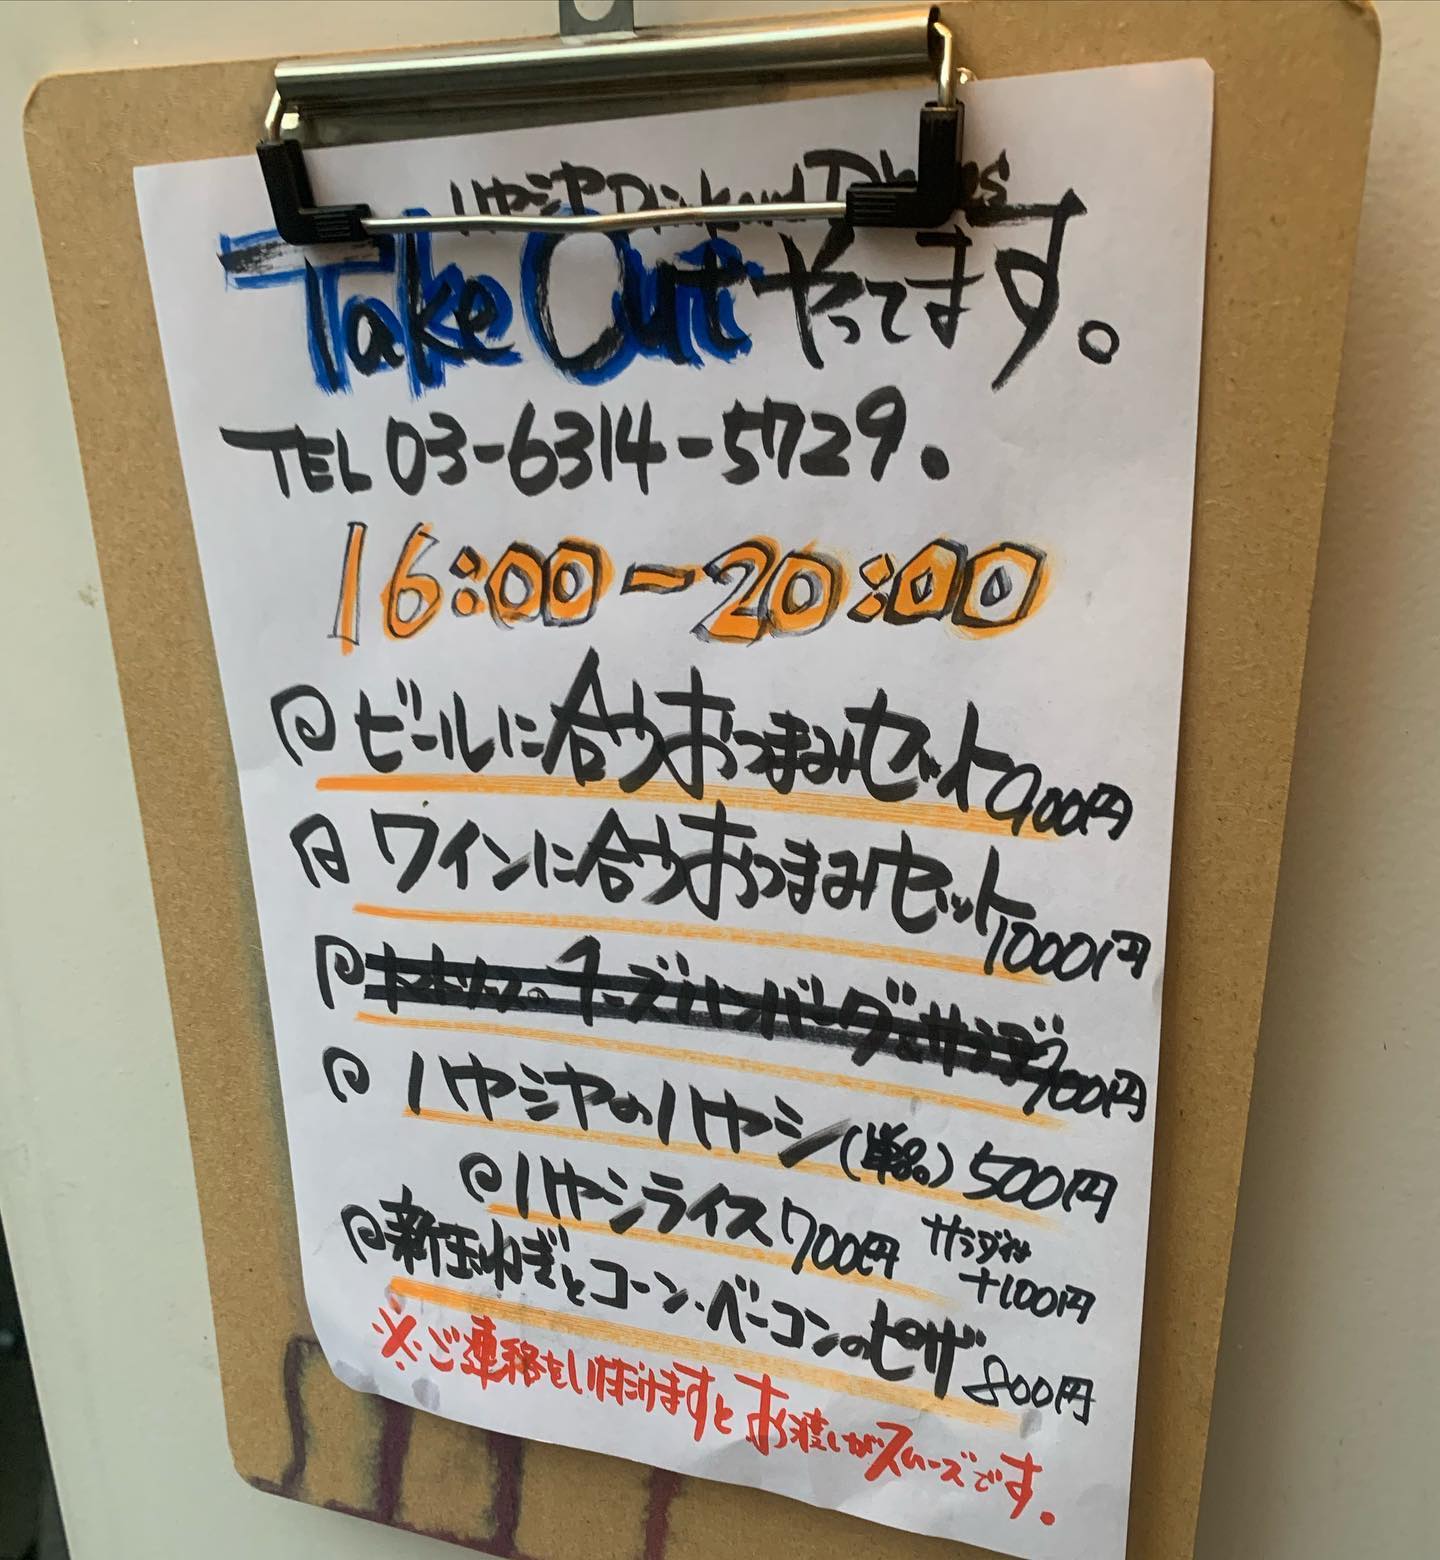 ハヤシヤ Drink and Dishes
Take Out やってます。
TEL 03-6314-5729.
16:00-20:00
ビールに合うおつまみセット 900円
ワインに合うおつまみセット 1000円
チーズハンバーグ 900円
ハヤシヤのハヤシ(単品) 500円
ハヤシライス 700円 サラダは +100円
新玉ねぎとコーン・ベーコンのピザ 800円
※ご連絡をいただけますとお渡しがスムーズです。